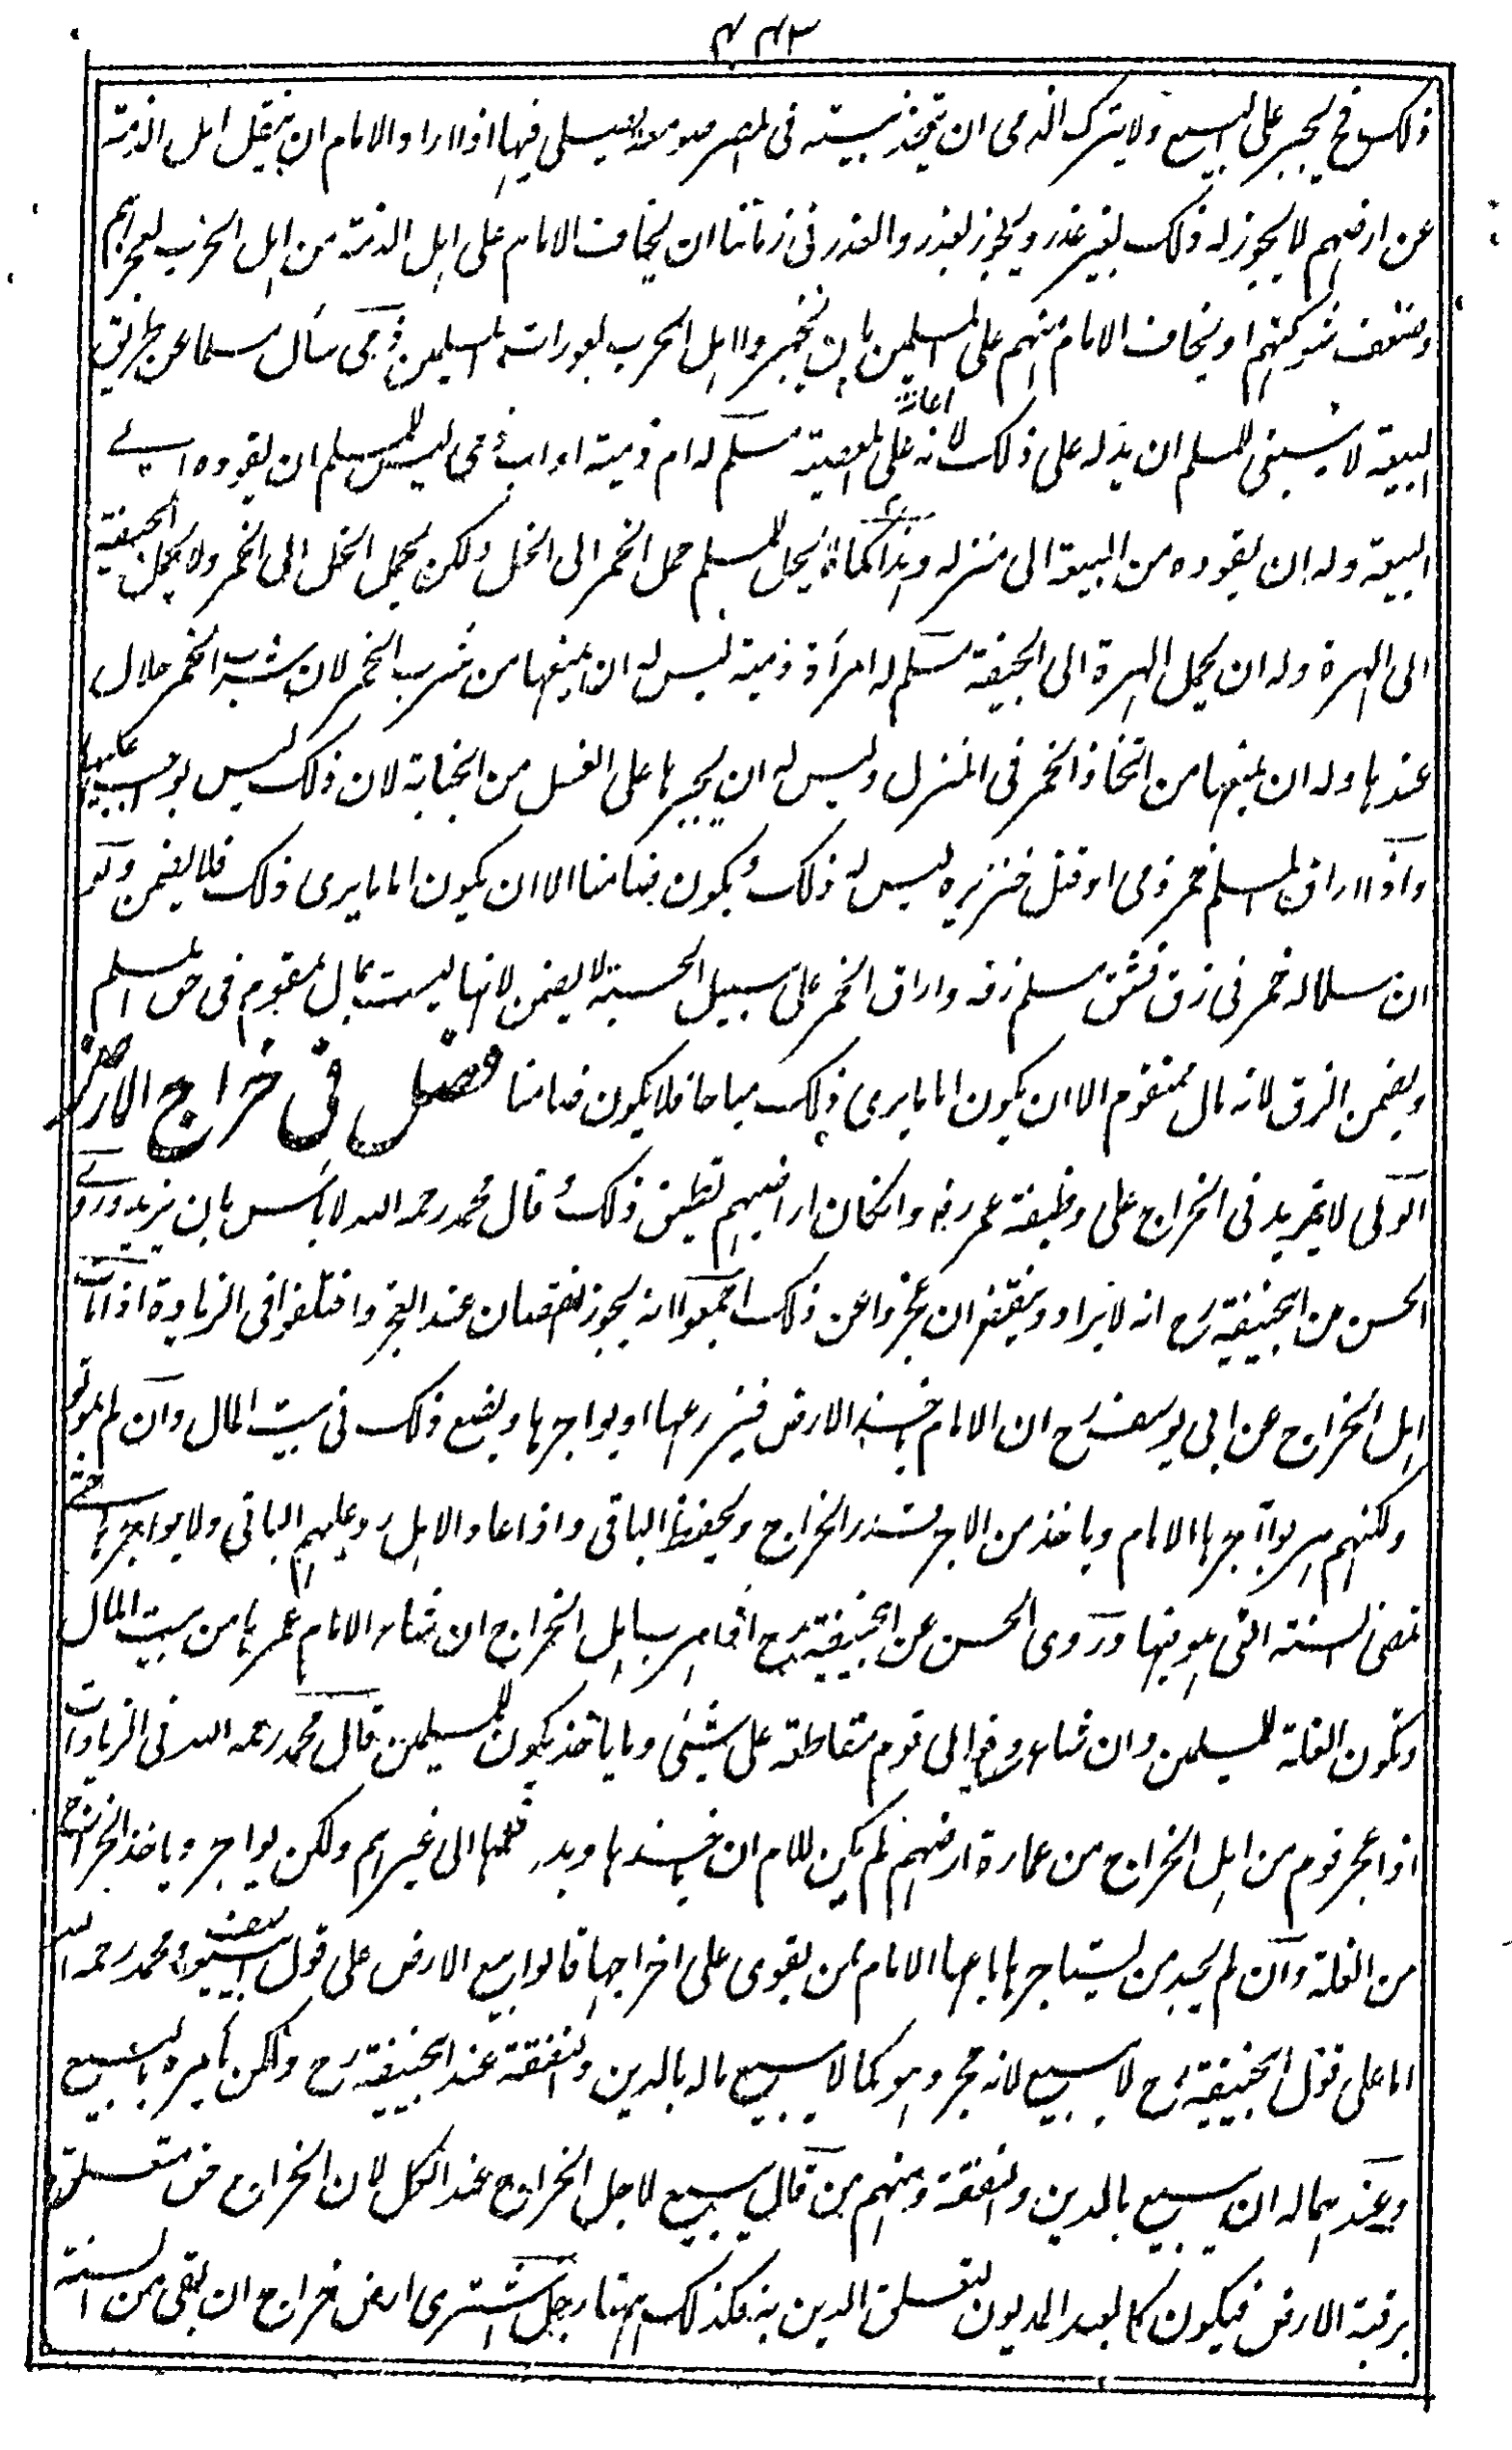 ۴۴۳
ذلك فح يجبر على البيع ولا يترك الذمى ان يتخذ بيته فى المصر صومعة يصلى فيها اذا اراد الامام ان ينقل اهل الذمة
عن ارضهم لا يجوز له ذلك بغير عذر ويجوز بعذر والعذر فى زماننا ان يخاف الامام على اهل الذمة من اهل الحرب لعجزهم
وضعف شوكتهم او يخاف الامام منهم على المسلمين بان يخبروا اهل الحرب بعورات المسلمين ذمى سأل مسلما عن طريق
البيعة لا ينبغى للمسلم ان يدله على ذلك لانه اعانة على المعصية مسلم له ام ذمية او اب ذمى ليس للمسلم ان يقوده الى
البيعة وله ان يقوده من البيعة الى منزله وهذا كما لا يحل للمسلم حمل الخمر الى الخل ولكن يحمل الخل الى الخمر ولا يحمل الجيفة
الى الهرة وله ان يحمل الهرة الى الجيفة مسلم له امرأة ذمية ليس له ان يمنعها من شرب الخمر لان شرب الخمر حلال
عندها وله ان يمنعها من اتخاذ الخمر فى المنزل وليس له ان يجبرها على الغسل من الجنابة لان ذلك ليس بواجب عليها
واذا اراق المسلم خمر ذمى او قتل خنزيره ليس له ذلك ويكون ضامنا الا ان يكون اماما يرى ذلك فلا يضمن ولو
ان مسلما له خمر فى زق فشق مسلم زقه واراق الخمر على سبيل الحسبة لا يضمن لانها ليست بمال متقوم فى حق المسلم
ويضمن الزق لانه مال متقوم الا ان يكون اماما يرى ذلك مباحا فلا يكون ضامنا فصل فى خراج الارض
الوالى لا يزيد فى الخراج على وظيفة عمر رضه وان كان اراضيهم تطيق ذلك وقال محمد رحمه الله لا بأس بان يزيد وروى
الحسن عن ابيحنيفة رح انه لا يزاد وينقص ان عجزوا عن ذلك اجمعوا انه يجوز النقصان عند العجز واختلفوا فى الزيادة اذا مات
اهل الخراج عن ابى يوسف رح ان الامام يأخذ الارض فيزرعها او يواجرها ويضع ذلك فى بيت المال وان لم يموتوا
ولكنهم هربوا آجرها الامام وياخذ من الاجر قدر الخراج ويحفظ الباقى واذا عاد الاهل رد عليهم الباقى ولا يواجرها حتى
تمضى السنة التى هربوا فيها وروى الحسن عن ابيحنيفة رح اذا هرب اهل الخراج ان شاء الامام عمرها من بيت المال
وتكون الغلة للمسلمين وان شاء دفع الى قوم مقاطعة على شيئ وما ياخذ يكون للمسلمين قال محمد رحمه الله فى الزيادات
اذا عجز قوم من اهل الخراج من عمارة ارضهم لم يكن للامام ان ياخذها ويدفعها الى غيرهم ولكن يواجر وياخذ الخراج
من الغلة وان لم يجد من يستاجرها باعها الامام ممن يقوى على اخراجها قالوا بيع الارض على قول ابى يوسف ومحمد رحمه الله
اما على قول ابيحنيفة رح لا يبيع لانه حجر وهو كما لا يبيع ماله بالدين والنفقة عند ابيحنيفة رح ولكن يأمره بالبيع
وعندهما له ان يبيع بالدين والنفقة ومنهم من قال يبيع لاجل الخراج عند الكل لان الخراج حق متعلق
برقبة الارض فيكون كالعبد المديون لتعلق الدين به فكذلك ههنا رجل اشترى ارض خراج ان بقى من السنة